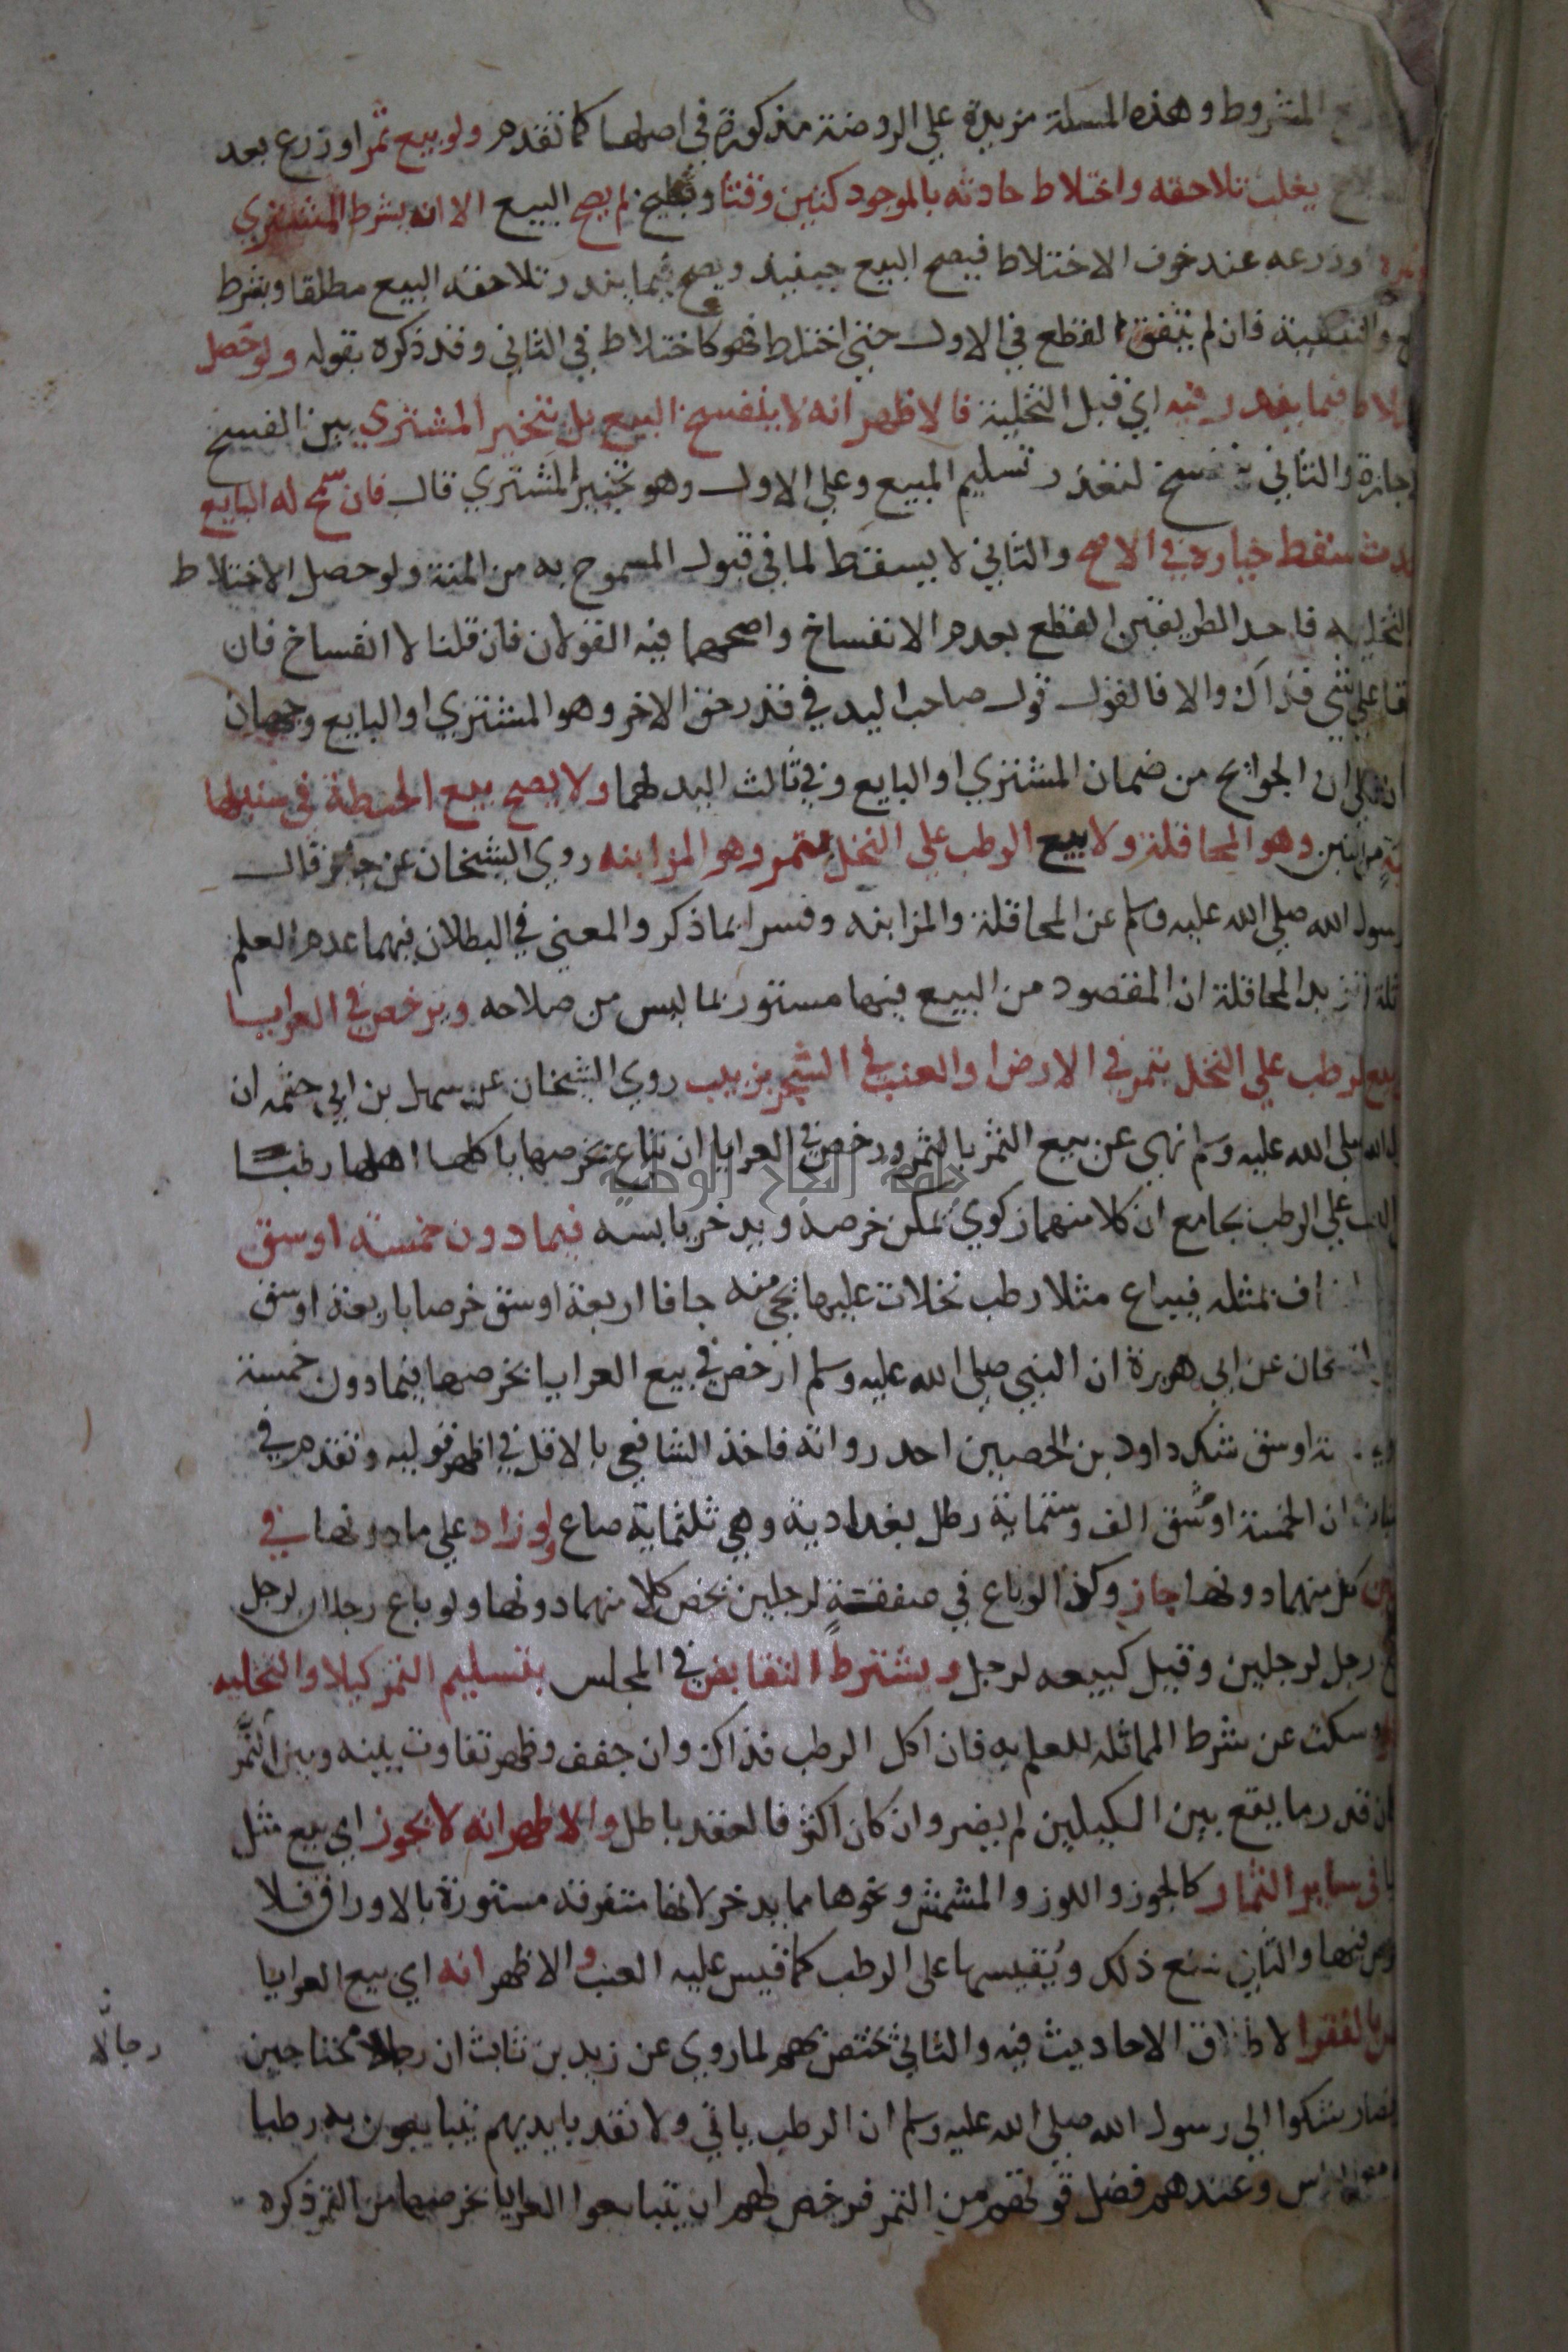 المشروط وهذه المسلة مزيدة علي الروضة مذكورة في اصلها كما تقدم ولو بيع ثمر او زرع بعد
يغلب تلاحقه واختلاط حادثه بالموجود كتين وقثا وبطيخ لم يصح البيع الا ان يشرط المشتري
او زرعه عند خوف الاختلاط فيصح البيع حينيذ ويصح فيما يندر تلاحقه البيع مطلقا وبشرط
والتبقية فان لم يتفق القطع في الاول حتي اختلط فهو كاختلاط في الثاني وقد ذكره بقوله ولو حصل
فيما يندر فيه اي قبل التخلية فالاظهر انه لا ينفسخ البيع بل يتخير المشتري بين الفسخ
والثاني ينفسخ لتعذر تسليم المبيع وعلي الاول وهو تخيير المشتري قال فان سمح له البايع
سقط خياره في الاصح والثاني لا يسقط لما في قبول المسموح به من المنة ولو حصل الاختلاط
التخلية فاحد الطريقين القطع بعدم الانفساخ واصحهما فيه القولان فان قلنا لا انفساخ فان
علي شي فذاك والا فالقول قول صاحب اليد في قدر حق الاخر وهو المشتري او البايع وجهان
ان الجوايح من ضمان المشتري او البايع وفي ثالث اليد لهما ولا يصح بيع الحنطة في سنبلها
من التبن وهو المحاقلة ولا بيع الرطب علي النخل بتمر وهو المزابنه روي الشيخان عن جابر قال
رسول الله صلي الله عليه وسلم عن المحاقلة والمزابنه وفسرا بما ذكر والمعني في البطلان فيهما عدم العلم
تزيد المحاقلة ان المقصود من البيع فيها مستور بما ليس من صلاحه ويرخص في العرايا
بيع الرطب علي النخل بتمر في الارض او العنب في الشجر بزبيب روي الشيخان عن سهل بن ابي حثمه ان
صلي الله عليه وسلم نهي عن بيع الثمر بالتمر ورخص في العرايا ان تباع بخرصها ياكلها اهلها رطبا
علي الرطب بجامع ان كلا منهما زكوي يمكن خرصه ويدخر يابسه فيما دون خمسة اوسق
بمثله فيباع مثلا رطب نخلات عليها يجي منه جافا اربعة اوسق خرصا باربعة اوسق
عن ابي هريرة ان النبي صلي الله عليه وسلم ارخص في بيع العرايا بخرصها فيما دون خمسة
اوسق شك داود بن الحصين احد رواته فاخذ الشافعي بالاقل في اظهر قوليه وتقدم في
ان الخمسة اوسق الف وستماية رطل بغدادية وهي ثلثماية صاع ولو زاد علي ما دونها في
كل منهما دونها جاز وكذا لو باع في صفقة لرجلين يخص كلا منهما دونها ولو باع رجلان لرجل
رجل لرجلين وقيل كبيعه لرجل ويشترط التقابض في المجلس بتسليم التمر كيلا والتخليه
وسكت عن شرط المماثلة للعلم به فان اكل الرطب فذاك وان جفف وظهر تفاوت بينه وبين التمر
قدر ما يقع بين الكيلين لم يضر وان كان اكثر فالعقد باطل والاظهر انه لا يجوز اي بيع مثل
في ساير الثمار كالجوز واللوز والمشمش ونحوها مما يدخر لانها متفرقة مستورة بالاوراق فلا
فيها والثاني ذلك ويقيسها علي الرطب كما قيس عليه العنب والاظهر انه اي بيع العرايا
بالفقرا لاطلاق الاحاديث فيه والثاني يختص بهم لما روي عن زيد بن ثابت ان رجالا محتاجين
شكوا الي رسول الله صلي الله عليه وسلم ان الرطب ياتي ولا نقد بايديهم يتبايعون به رطبا
وعندهم فضل قوتهم من التمر فرخص لهم ان يتبايعوا العرايا بخرصها من التمر ذكره
رجالا